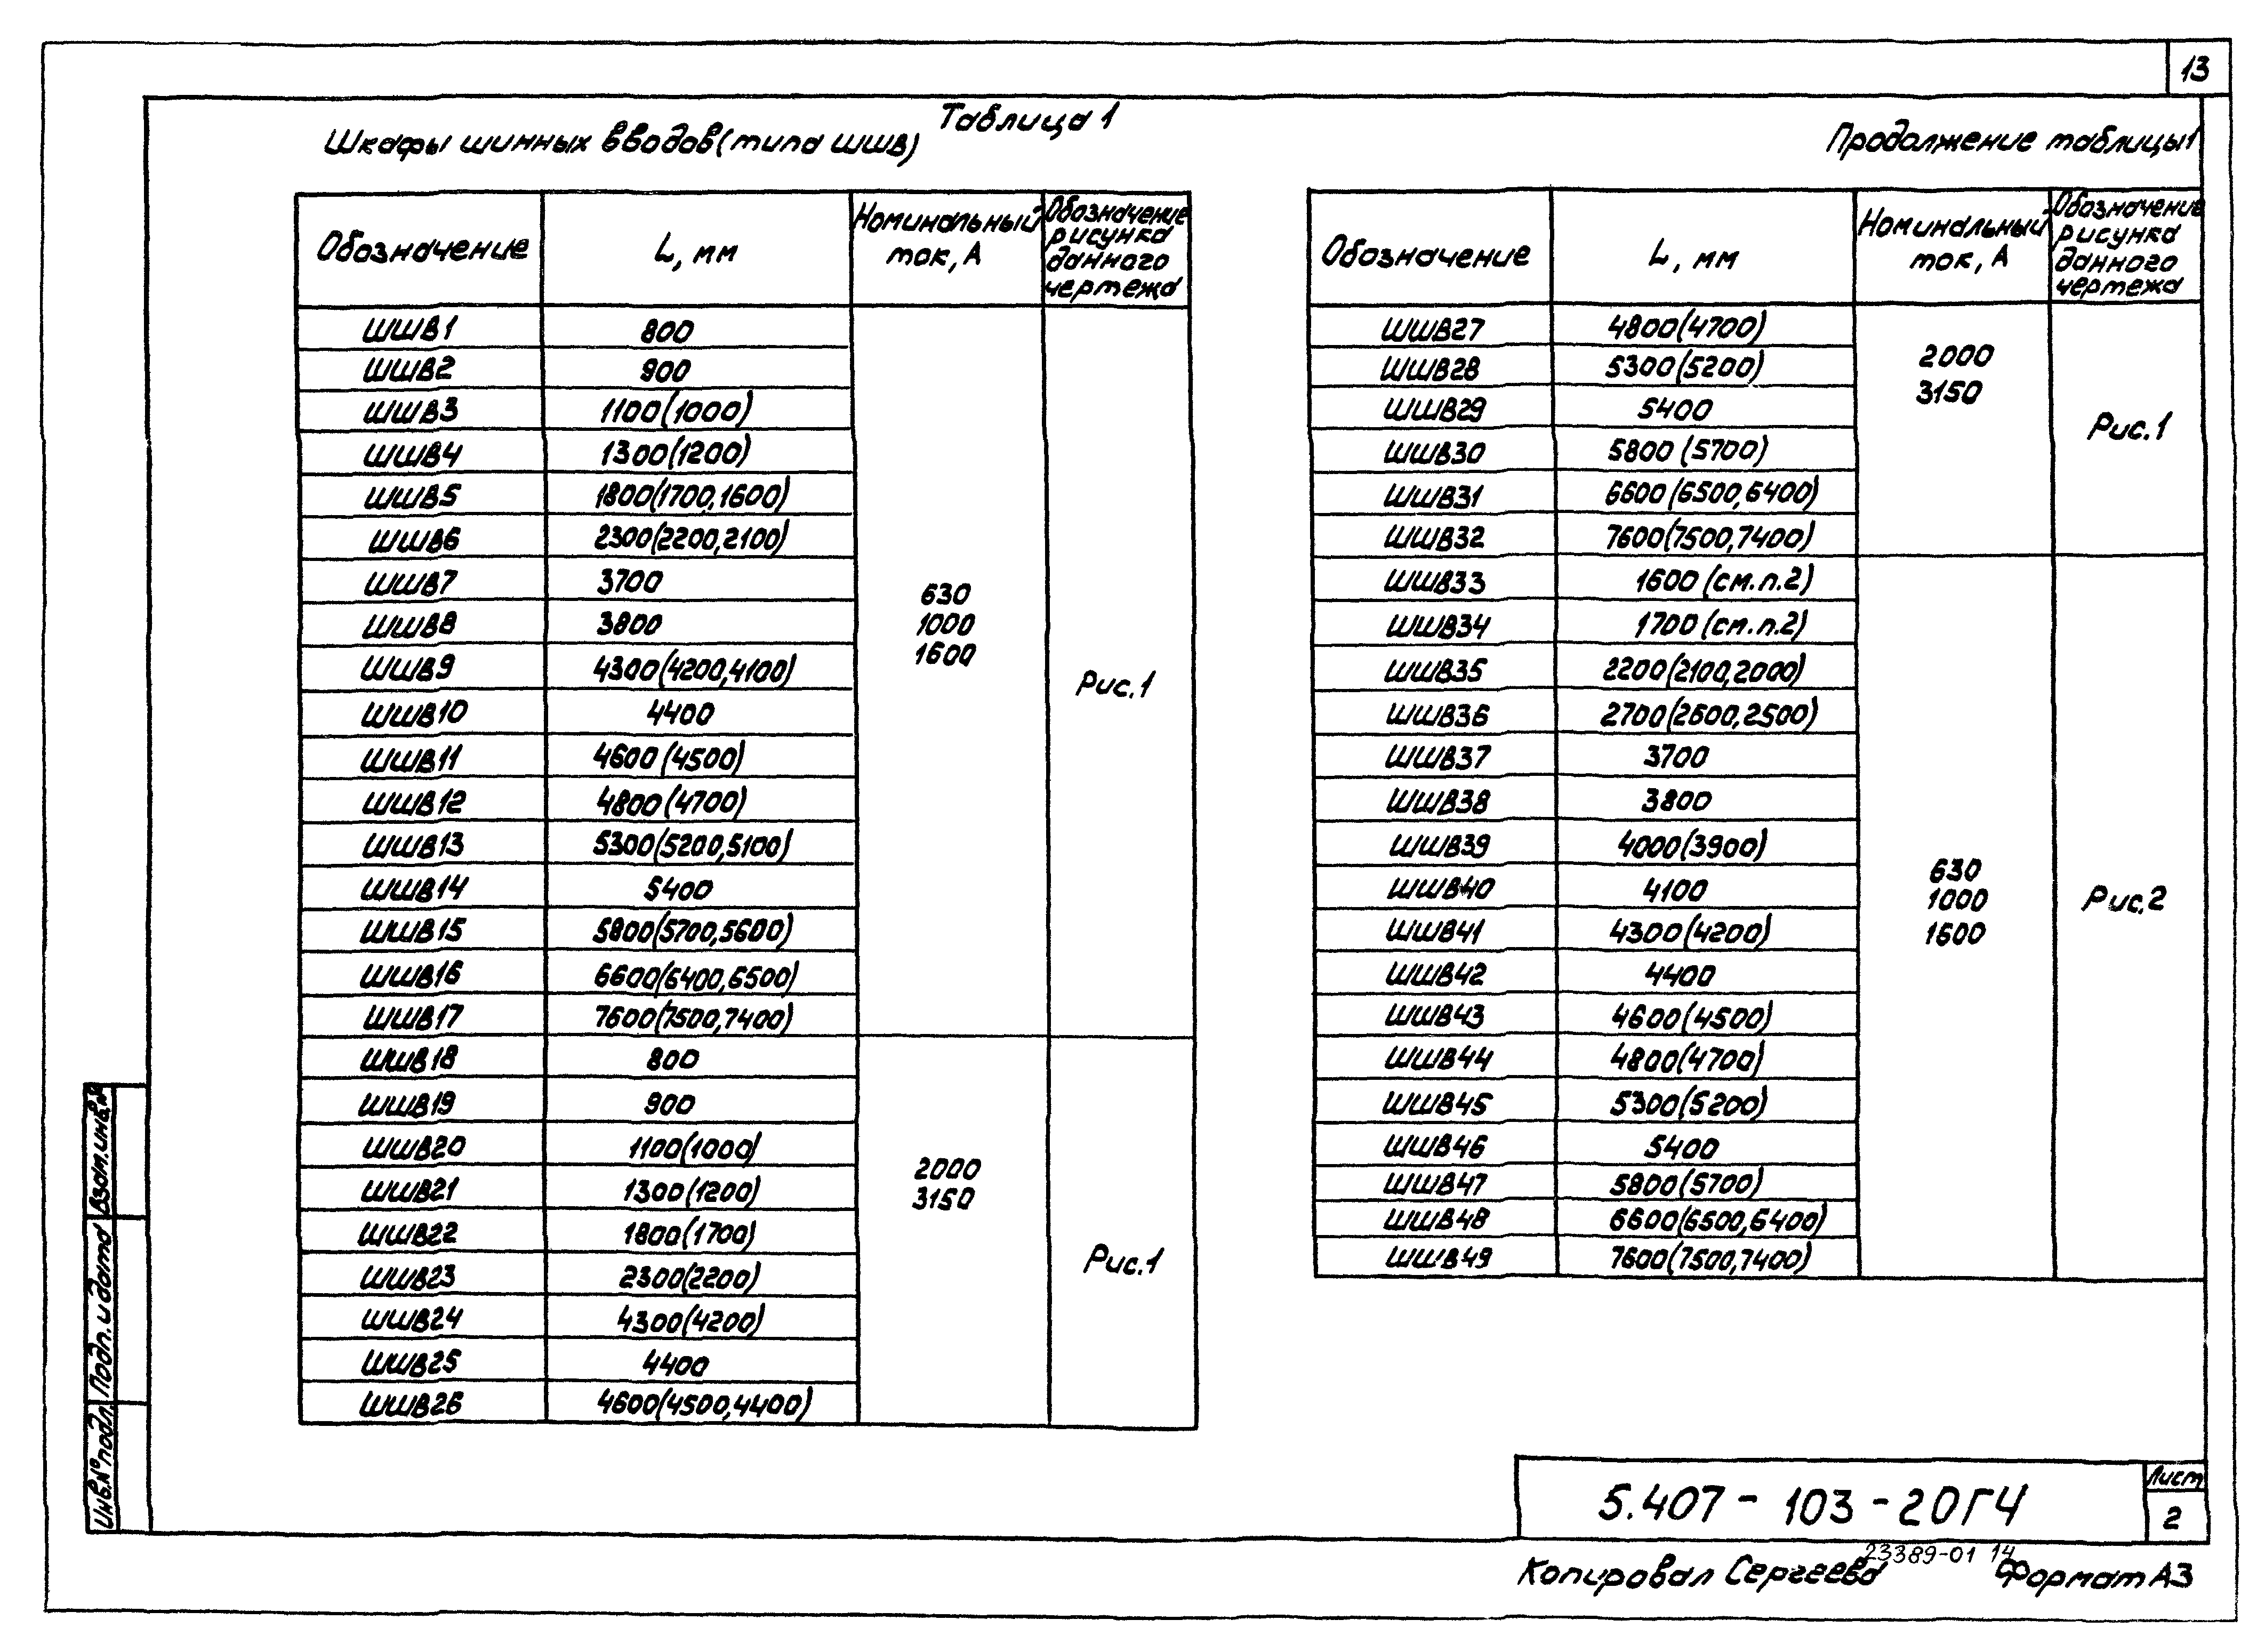 13
Таблица 1
Шкафы шинных вводов (типа ШШВ)
Обозначение | L, мм | Номинальный ток, А | Обозначение рисунка данного чертежа
ШШВ1 | 800
ШШВ2 | 900
ШШВ3 | 1100(1000)
ШШВ4 | 1300(1200)
ШШВ5 | 1800(1700,1600)
ШШВ6 | 2300(2200,2100)
ШШВ7 | 3700
ШШВ8 | 3800
ШШВ9 | 4300(4200,4100)
ШШВ10 | 4400
ШШВ11 | 4600(4500)
ШШВ12 | 4800(4700)
ШШВ13 | 5300(5200,5100)
ШШВ14 | 5400
ШШВ15 | 5800(5700,5600)
ШШВ16 | 6600(6400,6500)
ШШВ17 | 7600(7500,7400)
630
1000
1600
Рис.1
ШШВ18 | 800
ШШВ19 | 900
ШШВ20 | 1100(1000)
ШШВ21 | 1300(1200)
ШШВ22 | 1800(1700)
ШШВ23 | 2300(2200)
ШШВ24 | 4300(4200)
ШШВ25 | 4400
ШШВ26 | 4600(4500,4400)
2000
3150
Рис.1
Продолжение таблицы 1
Обозначение | L, мм | Номинальный ток, А | Обозначение рисунка данного чертежа
ШШВ27 | 4800(4700)
ШШВ28 | 5300(5200)
ШШВ29 | 5400
ШШВ30 | 5800 (5700)
ШШВ31 | 6600(6500,6400)
ШШВ32 | 7600(7500,7400)
2000
3150
Рис.1
ШШВ33 | 1600 (см.п.2)
ШШВ34 | 1700 (см.п.2)
ШШВ35 | 2200(2100,2000)
ШШВ36 | 2700(2600,2500)
ШШВ37 | 3700
ШШВ38 | 3800
ШШВ39 | 4000(3900)
ШШВ40 | 4100
ШШВ41 | 4300(4200)
ШШВ42 | 4400
ШШВ43 | 4600(4500)
ШШВ44 | 4800(4700)
ШШВ45 | 5300(5200)
ШШВ46 | 5400
ШШВ47 | 5800(5700)
ШШВ48 | 6600(6500,6400)
ШШВ49 | 7600(7500,7400)
630
1000
1600
Рис.2
Взам.инв.№
Подп. и дата
Инв.№подл.
5.407-103-20ГЧ
Лист
2
23389-01 14
Копировал Сергеева
Формат А3